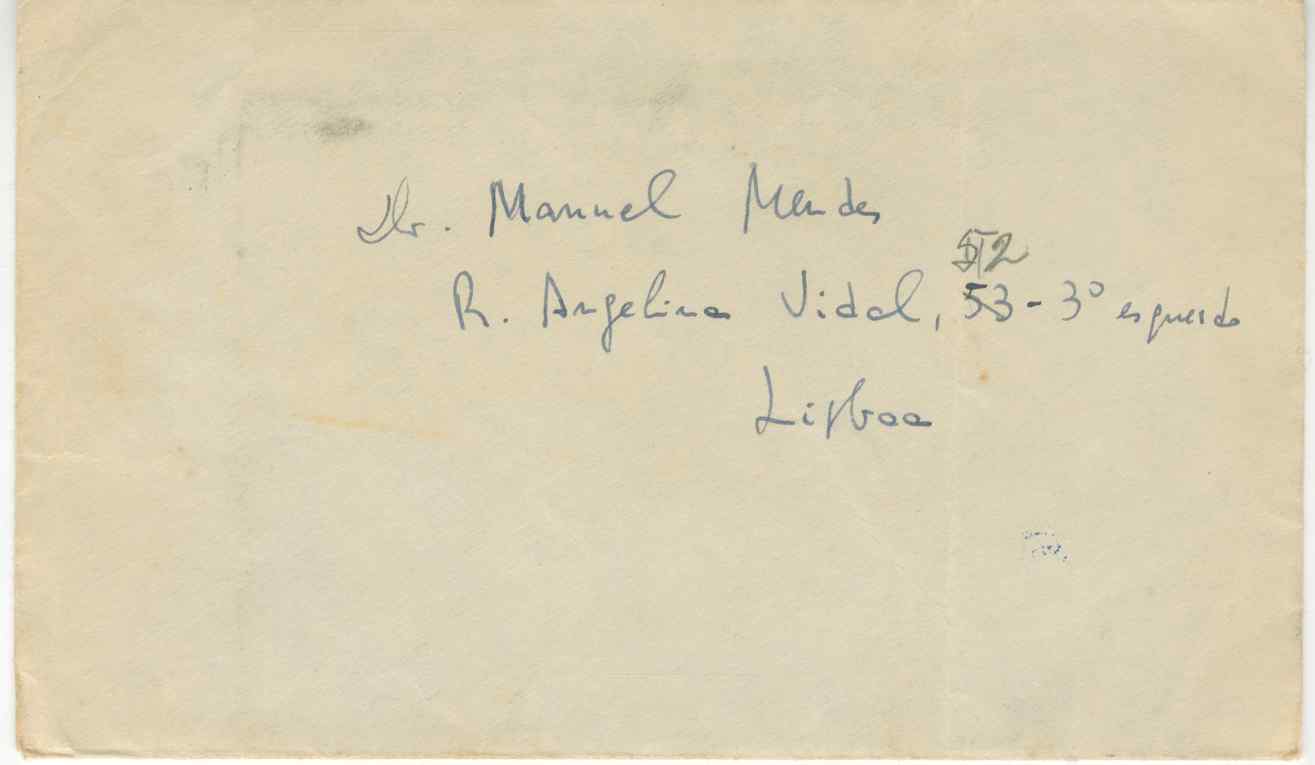 Dr. Manuel Mendes
R. Angelina Vidal, 53 - 3º esquerdo
Lisboa